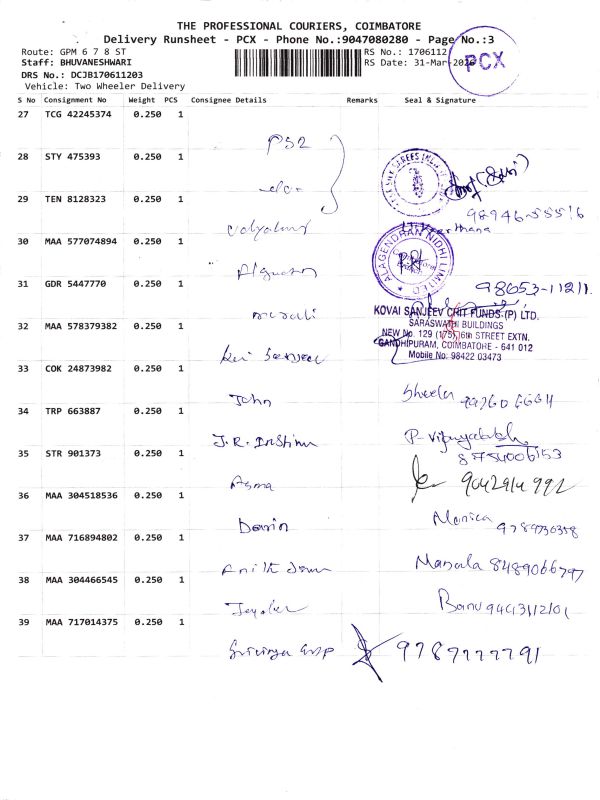 THE PROFESSIONAL COURIERS, COIMBATORE
Delivery Runsheet - PCX - Phone No.:9047080280 - Page No.:3
Route: GPM 6 7 8 ST
RS No.: 1706112
Staff: BHUVANESHWARI
RS Date: 31-Mar-
PCX
DRS No.: DCJB170611203
Vehicle: Two Wheeler Delivery
S No Consignment No Weight PCS Consignee Details Remarks Seal & Signature
27 TCG 42245374 0.250 1
28 STY 475393 0.250 1
29 TEN 8128323 0.250 1
98946-55516
30 MAA 577074894 0.250 1
ALAGENDRAN NIDHI LIMITED
31 GDR 5447770 0.250 1
98653-11211
murali
KOVAI SANJEEV CHIT FUNDS (P) LTD.
SARASWATHI BUILDINGS
32 MAA 578379382 0.250 1
NEW No. 129 (175), 6th STREET EXTN.
GANDHIPURAM, COIMBATORE - 641 012
Mobile No: 98422 03473
33 COK 24873982 0.250 1
John Sheela
34 TRP 663887 0.250 1
35 STR 901373 0.250 1
8754006153
Asma 9042914992
36 MAA 304518536 0.250 1
Monica
9789730358
37 MAA 716894802 0.250 1
38 MAA 304466545 0.250 1
Banu 9443112101
39 MAA 717014375 0.250 1
9787777791